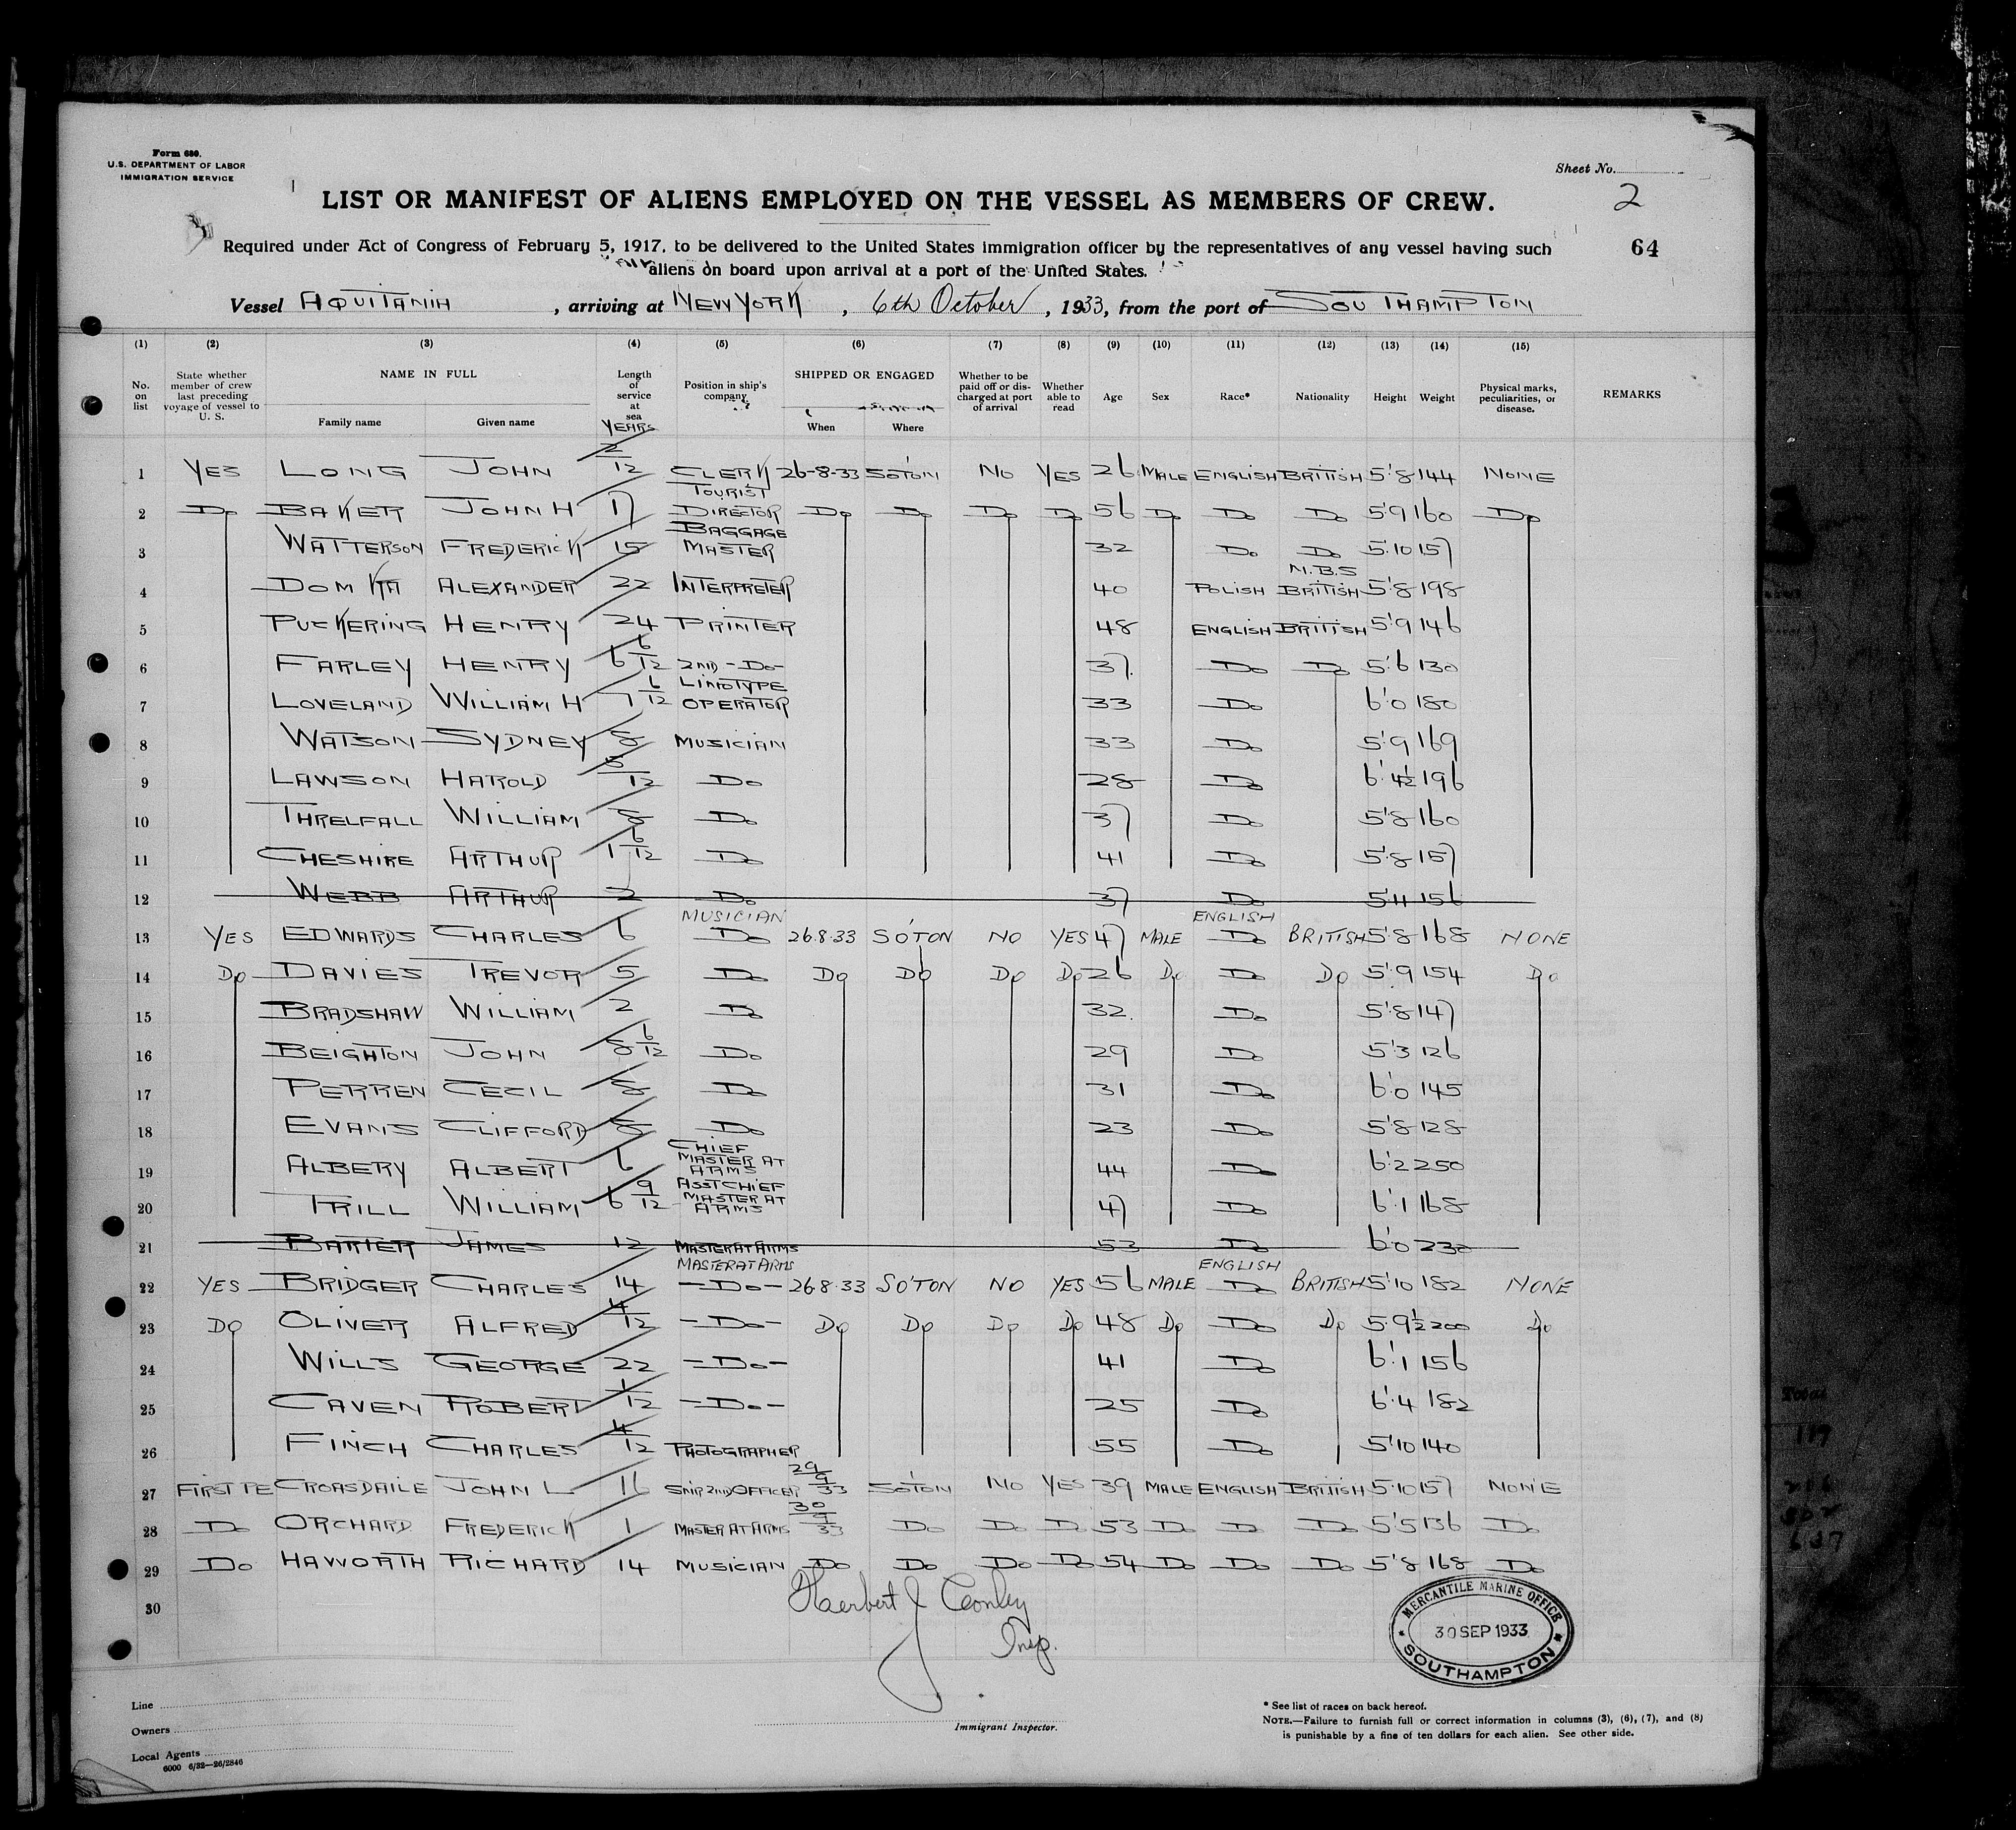 Form 680.
U.S. DEPARTMENT OF LABOR
IMMIGRATION SERVICE
Sheet No.
2
LIST OR MANIFEST OF ALIENS EMPLOYED ON THE VESSEL AS MEMBERS OF CREW.
64
Required under Act of Congress of February 5, 1917, to be delivered to the United States immigration officer by the representatives of any vessel having such
aliens on board upon arrival at a port of the United States.
Vessel AQUITANIA, arriving at NEW YORK, 6th October, 1933, from the port of SOUTHAMPTON
(1) (2) (3) (4) (5) (6) (7) (8) (9) (10) (11) (12) (13) (14) (15)
No. on list State whether member of crew last preceding voyage of vessel to U. S. NAME IN FULL Family name Given name Length of service at sea YEARS Position in ship's company SHIPPED OR ENGAGED When Where Whether to be paid off or discharged at port of arrival Whether able to read Age Sex Race* Nationality Height Weight Physical marks, peculiarities, or disease. REMARKS
1 YES LONG JOHN 2/12 CLERK 26-8-33 SO'TON NO YES 26 MALE ENGLISH BRITISH 5'8 144 NONE
2 Do BAKER JOHN H 17 TOURIST DIRECTOR Do Do Do Do 56 Do Do Do 5'9 160 Do
3 WATTERSON FREDERICK 15 BAGGAGE MASTER 32 Do Do 5'10 157
4 DOMKA ALEXANDER 22 INTERPRETER 40 POLISH N.B.S BRITISH 5'8 198
5 PUCKERING HENRY 24 PRINTER 48 ENGLISH BRITISH 5'9 146
6 FARLEY HENRY 6 6/12 2ND -Do- 37 Do Do 5'6 130
7 LOVELAND WILLIAM H 7 6/12 LINOTYPE OPERATOR 33 Do 6'0 180
8 WATSON SYDNEY 8 MUSICIAN 33 Do 5'9 169
9 LAWSON HAROLD 5/12 Do 28 Do 6'4½ 196
10 THRELFALL WILLIAM 8 Do 37 Do 5'8 160
11 CHESHIRE ARTHUR 1 6/12 Do 41 Do 5'8 157
12 WEBB ARTHUR 2 Do 37 Do 5'11 156
13 YES EDWARDS CHARLES 6 MUSICIAN Do 26.8.33 SO'TON NO YES 47 MALE ENGLISH Do BRITISH 5'8 168 NONE
14 Do DAVIES TREVOR 5 Do Do Do Do Do 26 Do Do Do 5'9 154 Do
15 BRADSHAW WILLIAM 2 Do 32 Do 5'8 147
16 BEIGHTON JOHN 8 6/12 Do 29 Do 5'3 126
17 PERREN CECIL 8 Do 31 Do 6'0 145
18 EVANS CLIFFORD 8 Do 23 Do 5'8 128
19 ALBERY ALBERT 6 CHIEF MASTER AT ARMS 44 Do 6'2 250
20 TRILL WILLIAM 6 9/12 ASST CHIEF MASTER AT ARMS 47 Do 6'1 168
21 BARTER JAMES 12 MASTER AT ARMS 53 Do 6'0 230
22 YES BRIDGER CHARLES 14 MASTER AT ARMS -Do- 26.8.33 SO'TON NO YES 56 MALE ENGLISH Do BRITISH 5'10 182 NONE
23 Do OLIVER ALFRED 4/12 -Do- Do Do Do Do 48 Do Do Do 5'9½ 200 Do
24 WILLS GEORGE 22 -Do- 41 Do 6'1 156
25 CAVEN ROBERT 1/12 -Do- 25 Do 6'4 182
26 FINCH CHARLES 4/12 PHOTOGRAPHER 55 Do 5'10 140
27 FIRST PE CROASDAILE JOHN L 16 SNIR 2ND OFFICER 29/9/33 SO'TON NO YES 39 MALE ENGLISH BRITISH 5'10 157 NONE
28 Do ORCHARD FREDERICK 1 MASTER AT ARMS 30/9/33 Do Do Do 53 Do Do Do 5'5 136 Do
29 Do HAWORTH RICHARD 14 MUSICIAN Do Do Do Do 54 Do Do Do 5'8 168 Do
30
Herbert J Conley
Insp.
MERCANTILE MARINE OFFICE
30 SEP 1933
SOUTHAMPTON
Line
Owners
Local Agents
6000 6/32—26/2846
Immigrant Inspector.
* See list of races on back hereof.
NOTE.—Failure to furnish full or correct information in columns (3), (6), (7), and (8)
is punishable by a fine of ten dollars for each alien. See other side.